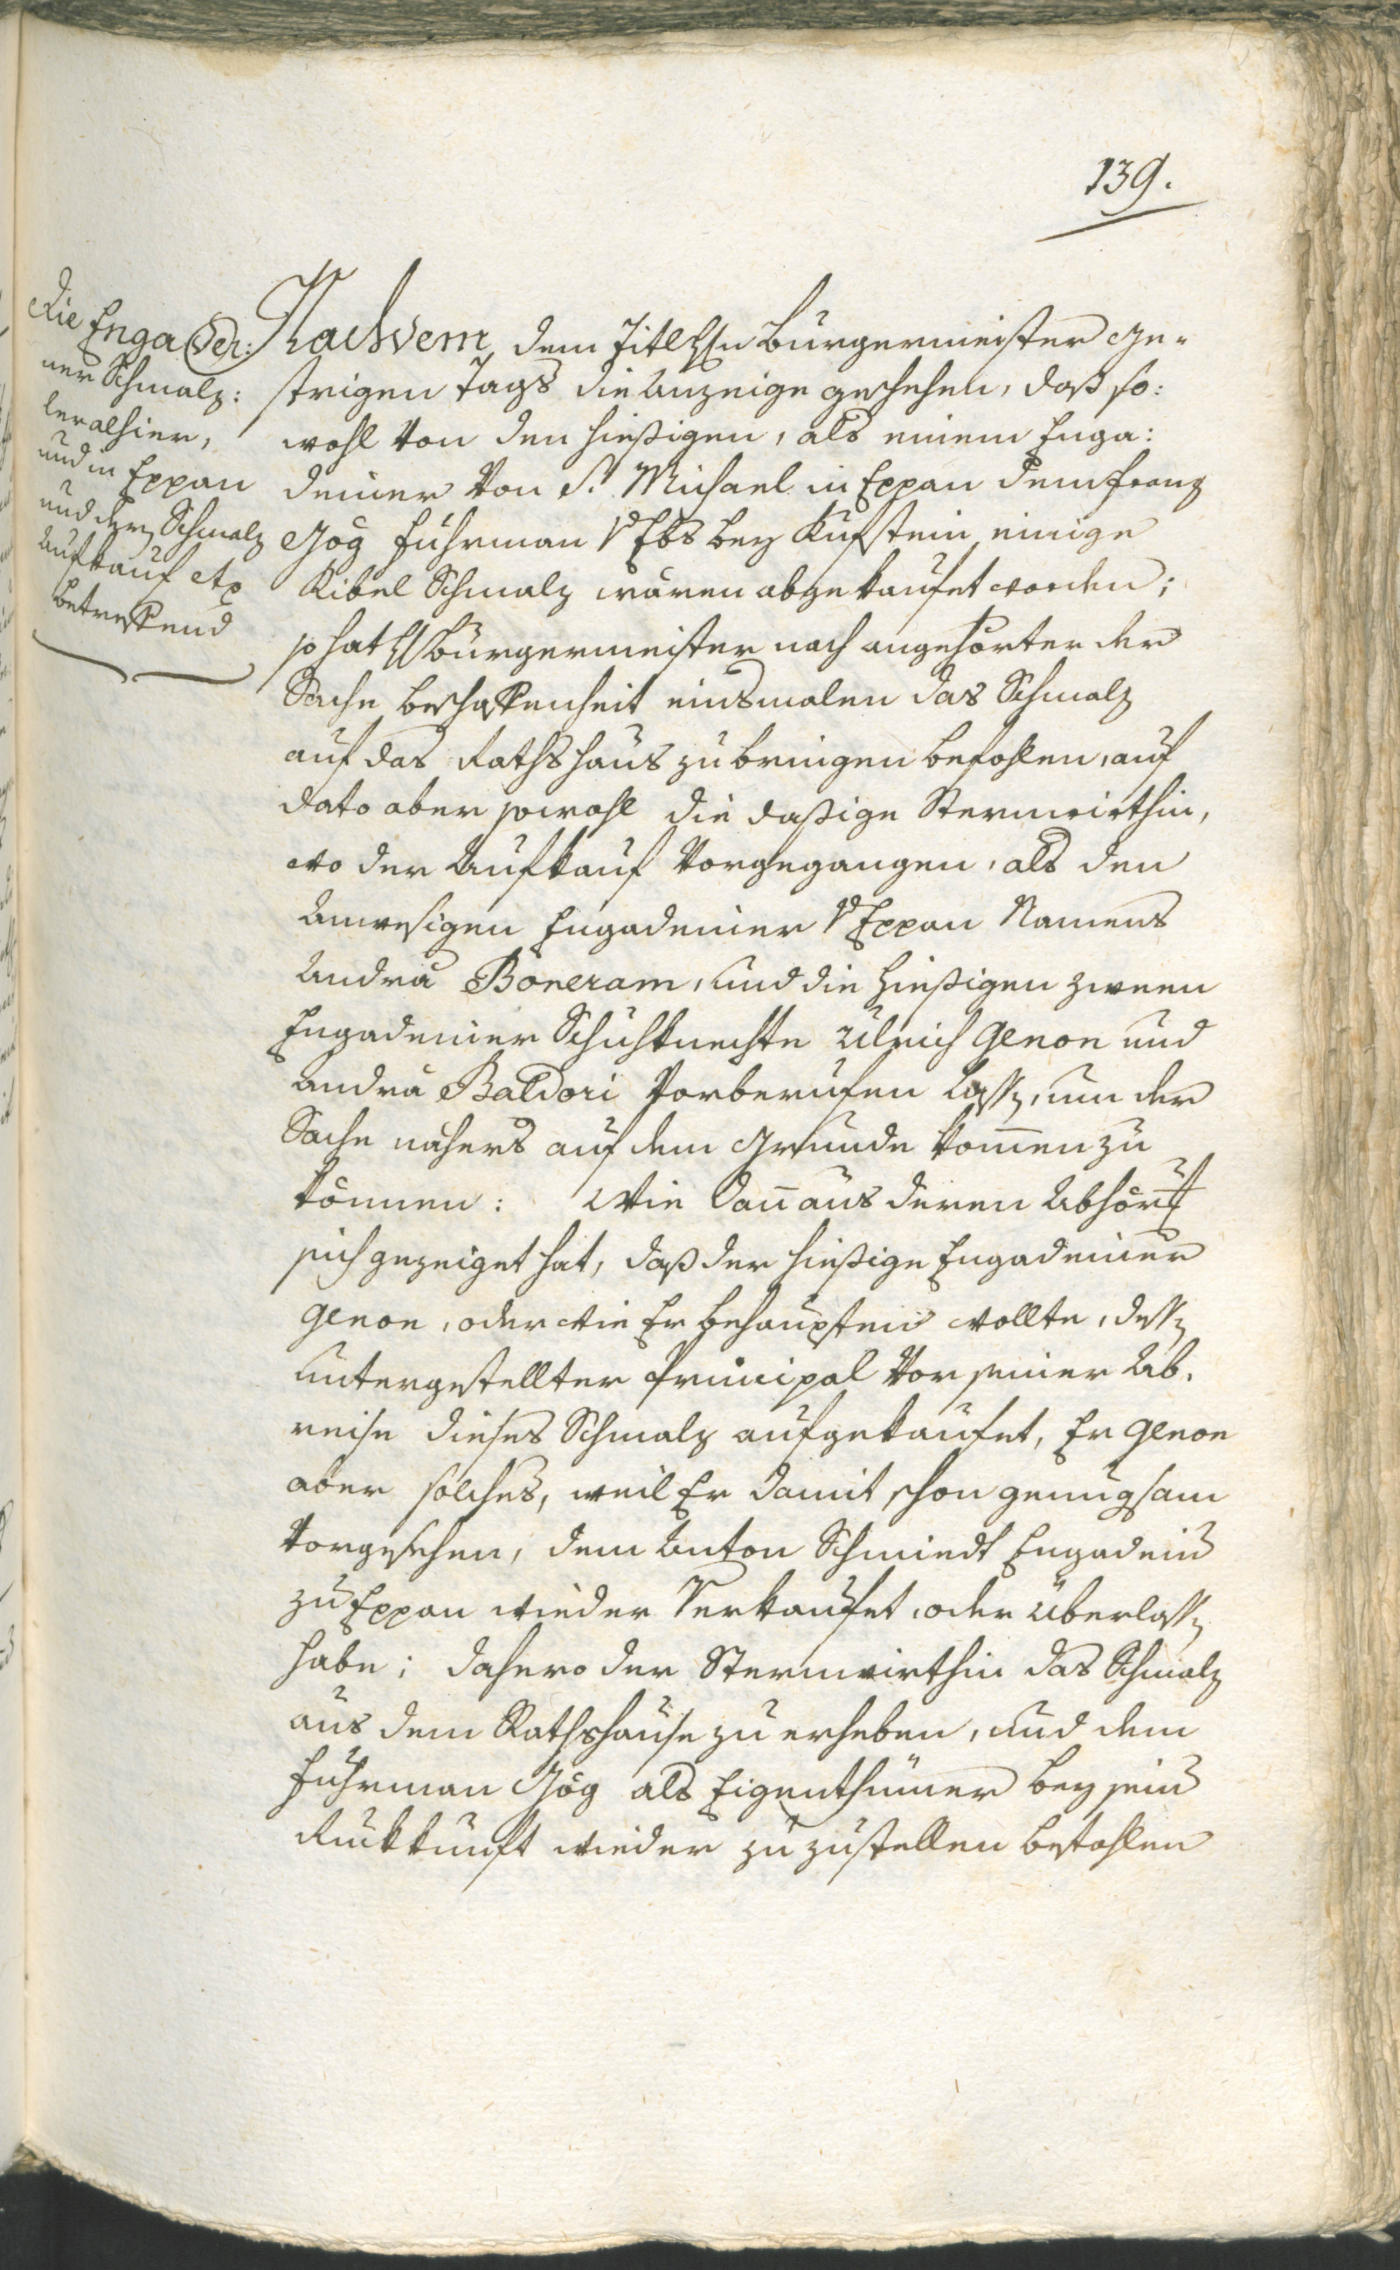 139.
Die Engadei:
ner Schmalz:
ler alhier,
und in Eppan
und dern Schmalz
Aufkauf etc
betreffend
Nachdem dem Titl Hn Burgermeister ge-
strigen Tags die Anzeige geschehen, daß so:
wohl von den hießigen, als einem Enga:
deiner von St. Michael in Eppan dem Franz
Gög Fuhrman v Ebs bey Kufstein einige
Kibel Schmalz wären abgekaufet worden;
so hat H Burgermeister nach angehörter der
Sache Beschaffenheit einsmalen das Schmalz
auf das Rathshaus zu bringen befohlen, auf
dato aber sowohl die dasige Sternwirthin,
wo der Aufkauf vorgegangen, als den
Anwesigen Engadeiner v Eppan Namens
Andrä Boneram, und die hießigen zween
Engadeiner Schuhknechte Ulrich Genon und
Andrä Baldori vorberufen lassen, um der
Sache nähers auf dem Grunde komen zu
können: Wie dan aus deren Abhörung
sich gezeiget hat, daß der hießige Engadeiner
Genon, oder wie Er behaupten wollte, dessen
untergestellter Principal vor seiner Ab-
reise dieses Schmalz aufgekaufet, Er Genon
aber solches, weil Er damit schon genugsam
vorgesehen, dem Anton Schmiedt Engadein
zu Eppan wieder verkaufet, oder überlassen
habe; dahero der Sternwirthin das Schmalz
aus dem Rathshause zu erheben, und dem
Fuhrman Gög als Eigenthümer bey sein
Ruckkunft wieder zuzustellen befohlen